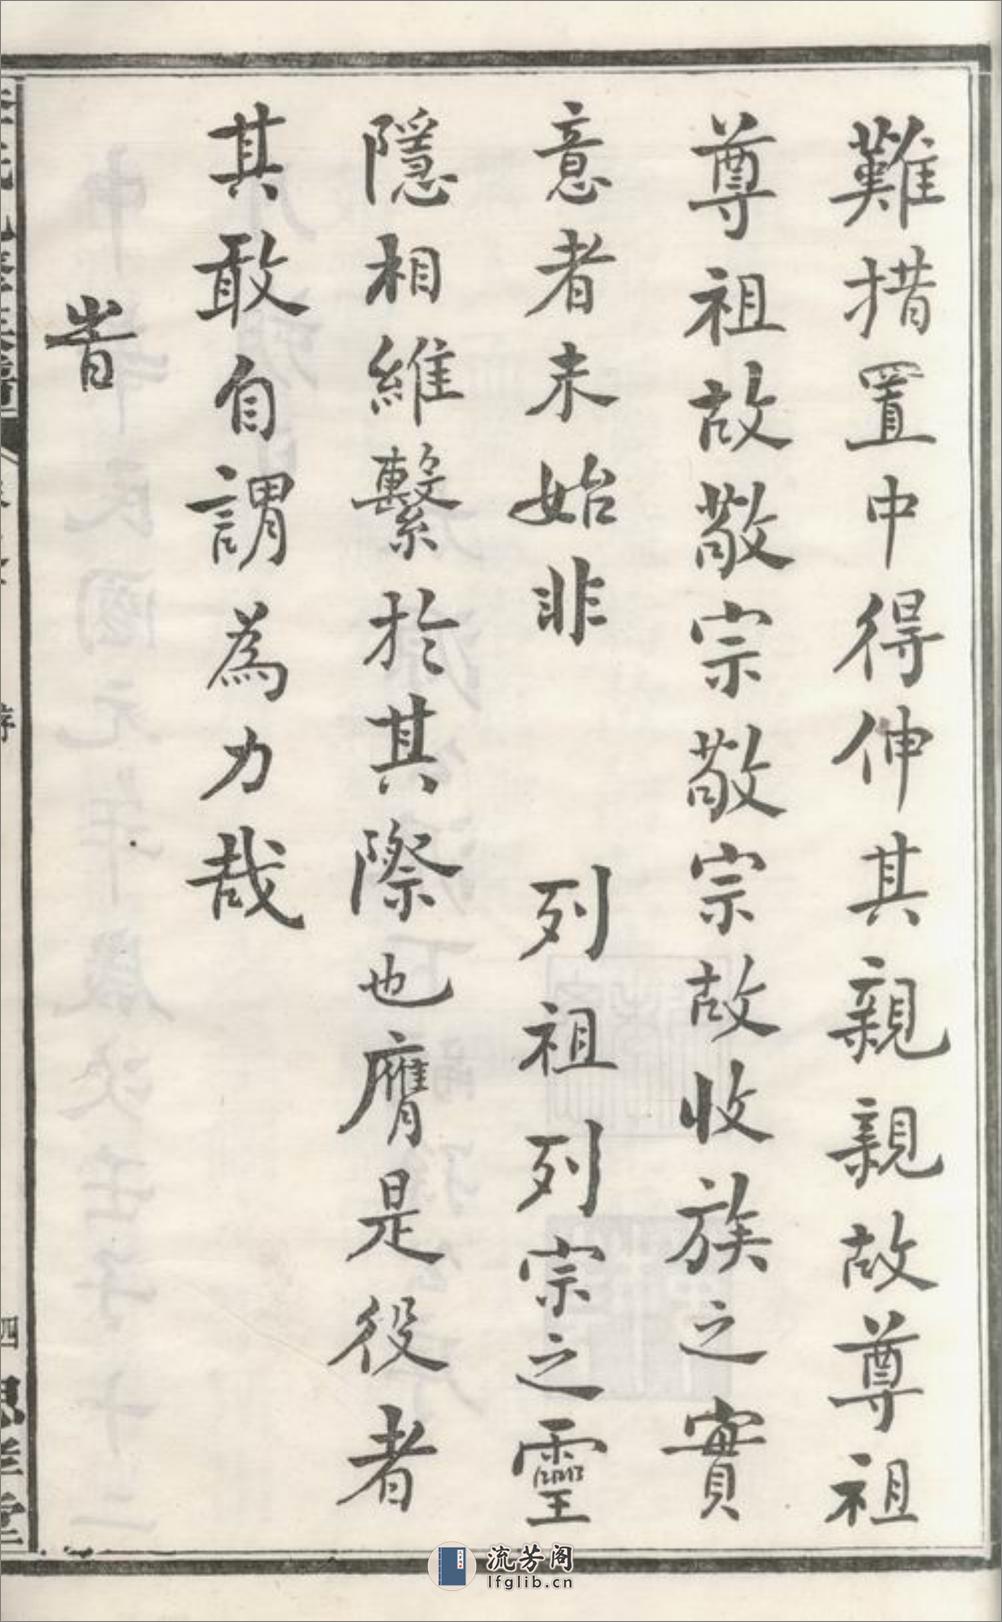 難措置中得伸其親親故尊祖
尊祖故敬宗敬宗故收族之實
意者未始非 列祖列宗之靈
隱相維繫於其際也膺是役者
其敢自謂為力哉
旹
四
思孝堂
流芳阁
lfglib.cn